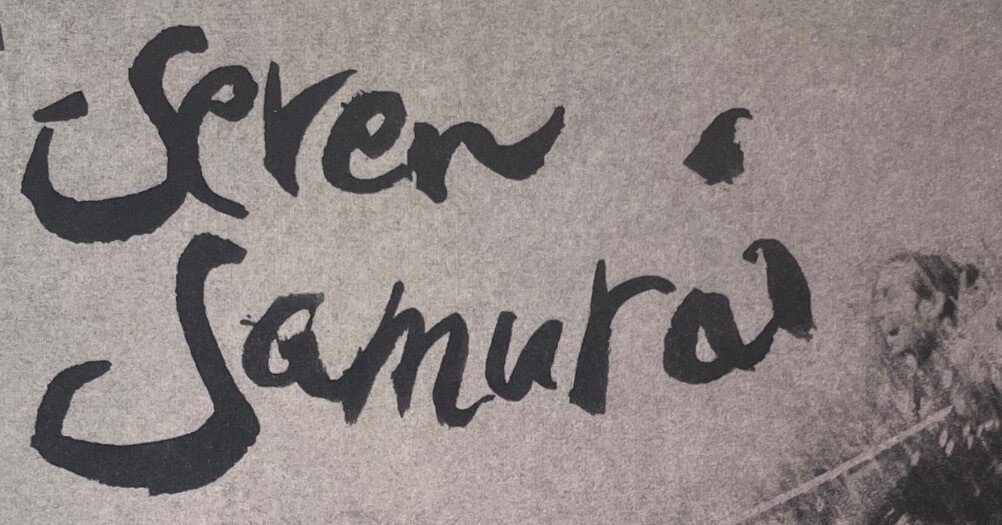 Seven
Samurai